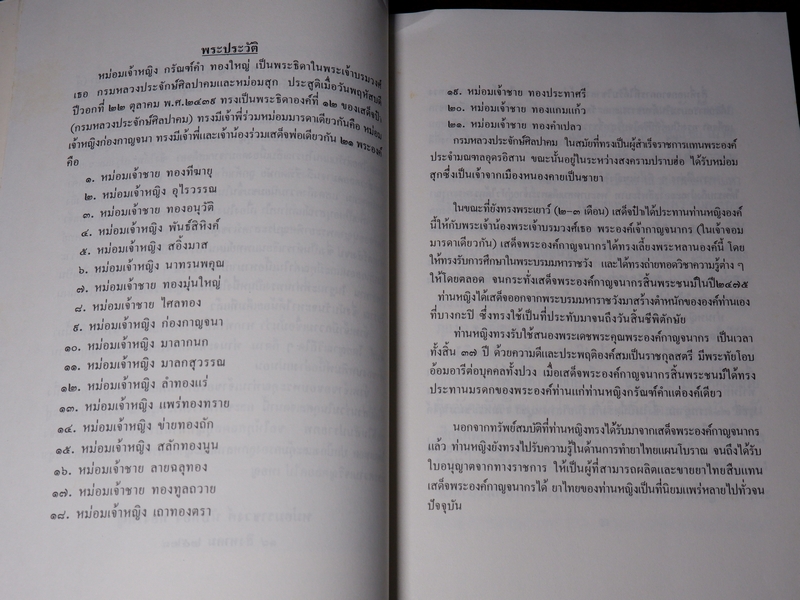 พระประวัติ
หม่อมเจ้าหญิง กรัณฑ์คำ ทองใหญ่ เป็นพระธิดาในพระเจ้าบรมวงศ์
เธอ กรมหลวงประจักษ์ศิลปาคมและหม่อมสุก ประสูติเมื่อวันพฤหัสบดี
ปีวอกที่ ๒๒ ตุลาคม พ.ศ.๒๔๓๙ ทรงเป็นพระธิดาองค์ที่ ๑๒ ของเสด็จป๋า
(กรมหลวงประจักษ์ศิลปาคม) ทรงมีเจ้าพี่ร่วมหม่อมมารดาเดียวกันคือ หม่อม
เจ้าหญิงก่องกาญจนา ทรงมีเจ้าพี่และเจ้าน้องร่วมเสด็จพ่อเดียวกัน ๒๑ พระองค์
คือ
๑. หม่อมเจ้าชาย ทองทีฆายุ
๒. หม่อมเจ้าหญิง อุไรวรรณ
๓. หม่อมเจ้าชาย ทองอนุวัติ
๔. หม่อมเจ้าหญิง พันธุ์สิหิงค์
๕. หม่อมเจ้าหญิง สอิ้งมาส
๖. หม่อมเจ้าหญิง นาทรนพคุณ
๗. หม่อมเจ้าชาย ทองมุ่นใหญ่
๘. หม่อมเจ้าชาย ไศลทอง
๙. หม่อมเจ้าหญิง ก่องกาญจนา
๑๐. หม่อมเจ้าหญิง มาลากนก
๑๑. หม่อมเจ้าหญิง มาลกสุวรรณ
๑๒. หม่อมเจ้าหญิง ลำทองแร่
๑๓. หม่อมเจ้าหญิง แพร่ทองทราย
๑๔. หม่อมเจ้าหญิง ข่ายทองถัก
๑๕. หม่อมเจ้าหญิง สลักทองนูน
๑๖. หม่อมเจ้าชาย ลายฉลุทอง
๑๗. หม่อมเจ้าชาย ทองทูลถวาย
๑๘. หม่อมเจ้าหญิง เถาทองตรา
๑๙. หม่อมเจ้าชาย ทองประทาศรี
๒๐. หม่อมเจ้าชาย ทองแถมแก้ว
๒๑. หม่อมเจ้าชาย ทองคำเปลว
กรมหลวงประจักษ์ศิลปาคม ในสมัยที่ทรงเป็นผู้สำเร็จราชการแทนพระองค์
ประจำมณฑลอุดรอิสาน ขณะนั้นอยู่ในระหว่างสงครามปราบฮ่อ ได้รับหม่อม
สุกซึ่งเป็นเจ้าจากเมืองหนองคายเป็นชายา
ในขณะที่ยังทรงพระเยาว์ (๒-๓ เดือน) เสด็จป๋าได้ประทานท่านหญิงองค์
นี้ให้กับพระเจ้าน้องพระเจ้าบรมวงศ์เธอ พระองค์เจ้ากาญจนากร (ในเจ้าจอม
มารดาเดียวกัน) เสด็จพระองค์กาญจนากรได้ทรงเลี้ยงพระหลานองค์นี้ โดย
ให้ทรงรับการศึกษาในพระบรมมหาราชวัง และได้ทรงถ่ายทอดวิชาความรู้ต่าง ๆ
ให้โดยตลอด จนกระทั่งเสด็จพระองค์กาญจนากรสิ้นพระชนม์ในปี๒๔๗๕
ท่านหญิงได้เสด็จออกจากพระบรมมหาราชวังมาสร้างตำหนักขององค์ท่านเอง
ที่บางกะปิ ซึ่งทรงใช้เป็นที่ประทับมาจนถึงวันสิ้นชีพิตักษัย
ท่านหญิงทรงรับใช้สนองพระเดชพระคุณพระองค์กาญจนากร เป็นเวลา
ทั้งสิ้น ๓๗ ปี ด้วยความดีและประพฤติองค์สมเป็นราชกุลสตรี มีพระทัยโอบ
อ้อมอารีต่อบุคคลทั้งปวง เมื่อเสด็จพระองค์กาญจนากรสิ้นพระชนม์ได้ทรง
ประทานมรดกของพระองค์ท่านแก่ท่านหญิงกรัณฑ์คำแต่องค์เดียว
นอกจากทรัพย์สมบัติที่ท่านหญิงทรงได้รับมาจากเสด็จพระองค์กาญจนากร
แล้ว ท่านหญิงยังทรงไปรับความรู้ในด้านการทำยาไทยแผนโบราณ จนถึงได้รับ
ใบอนุญาตจากทางราชการ ให้เป็นผู้ที่สามารถผลิตและขายยาไทยสืบแทน
เสด็จพระองค์กาญจนากรได้ ยาไทยของท่านหญิงเป็นที่นิยมแพร่หลายไปทั่วจน
ปัจจุบัน